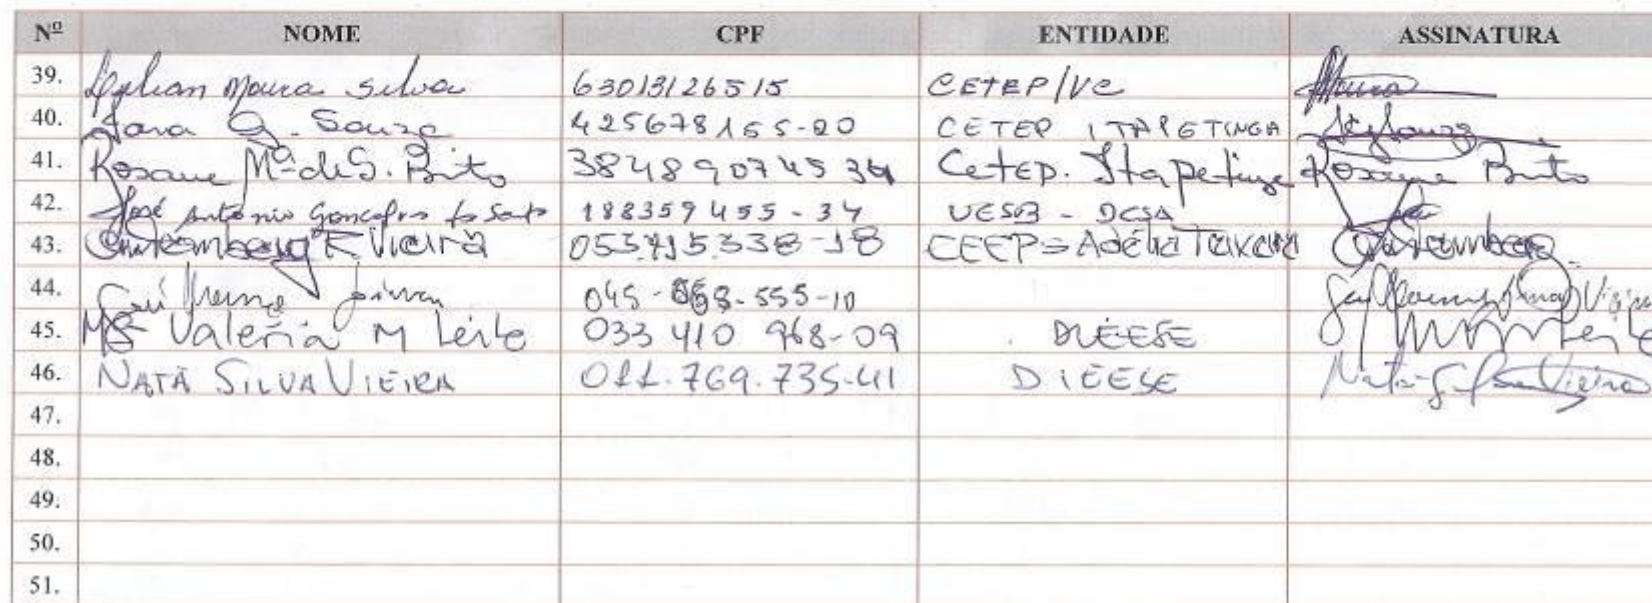 Nº NOME CPF ENTIDADE ASSINATURA
39. Maura Silva 63013126515 CETEP/VC Maura
40. G. Souza 425678155-20 CETEP ITAPETINGA
41. Rosane Mª de S. Brito 384890745 34 Cetep. Itapetinga Rosane Brito
42. José Antônio Gonçalves do Santo 188359455-34 UESB - DCSA
43. Gutemberg F. Vieira CEEP - Adélia Teixeira Gutemberg
44. Guilherme
45. Mª Valéria M Leite 033 410 968-09 DIEESE Leite
46. NATÃ SILVA VIEIRA 011.769.735-41 DIEESE Natã Silva Vieira
47.
48.
49.
50.
51.